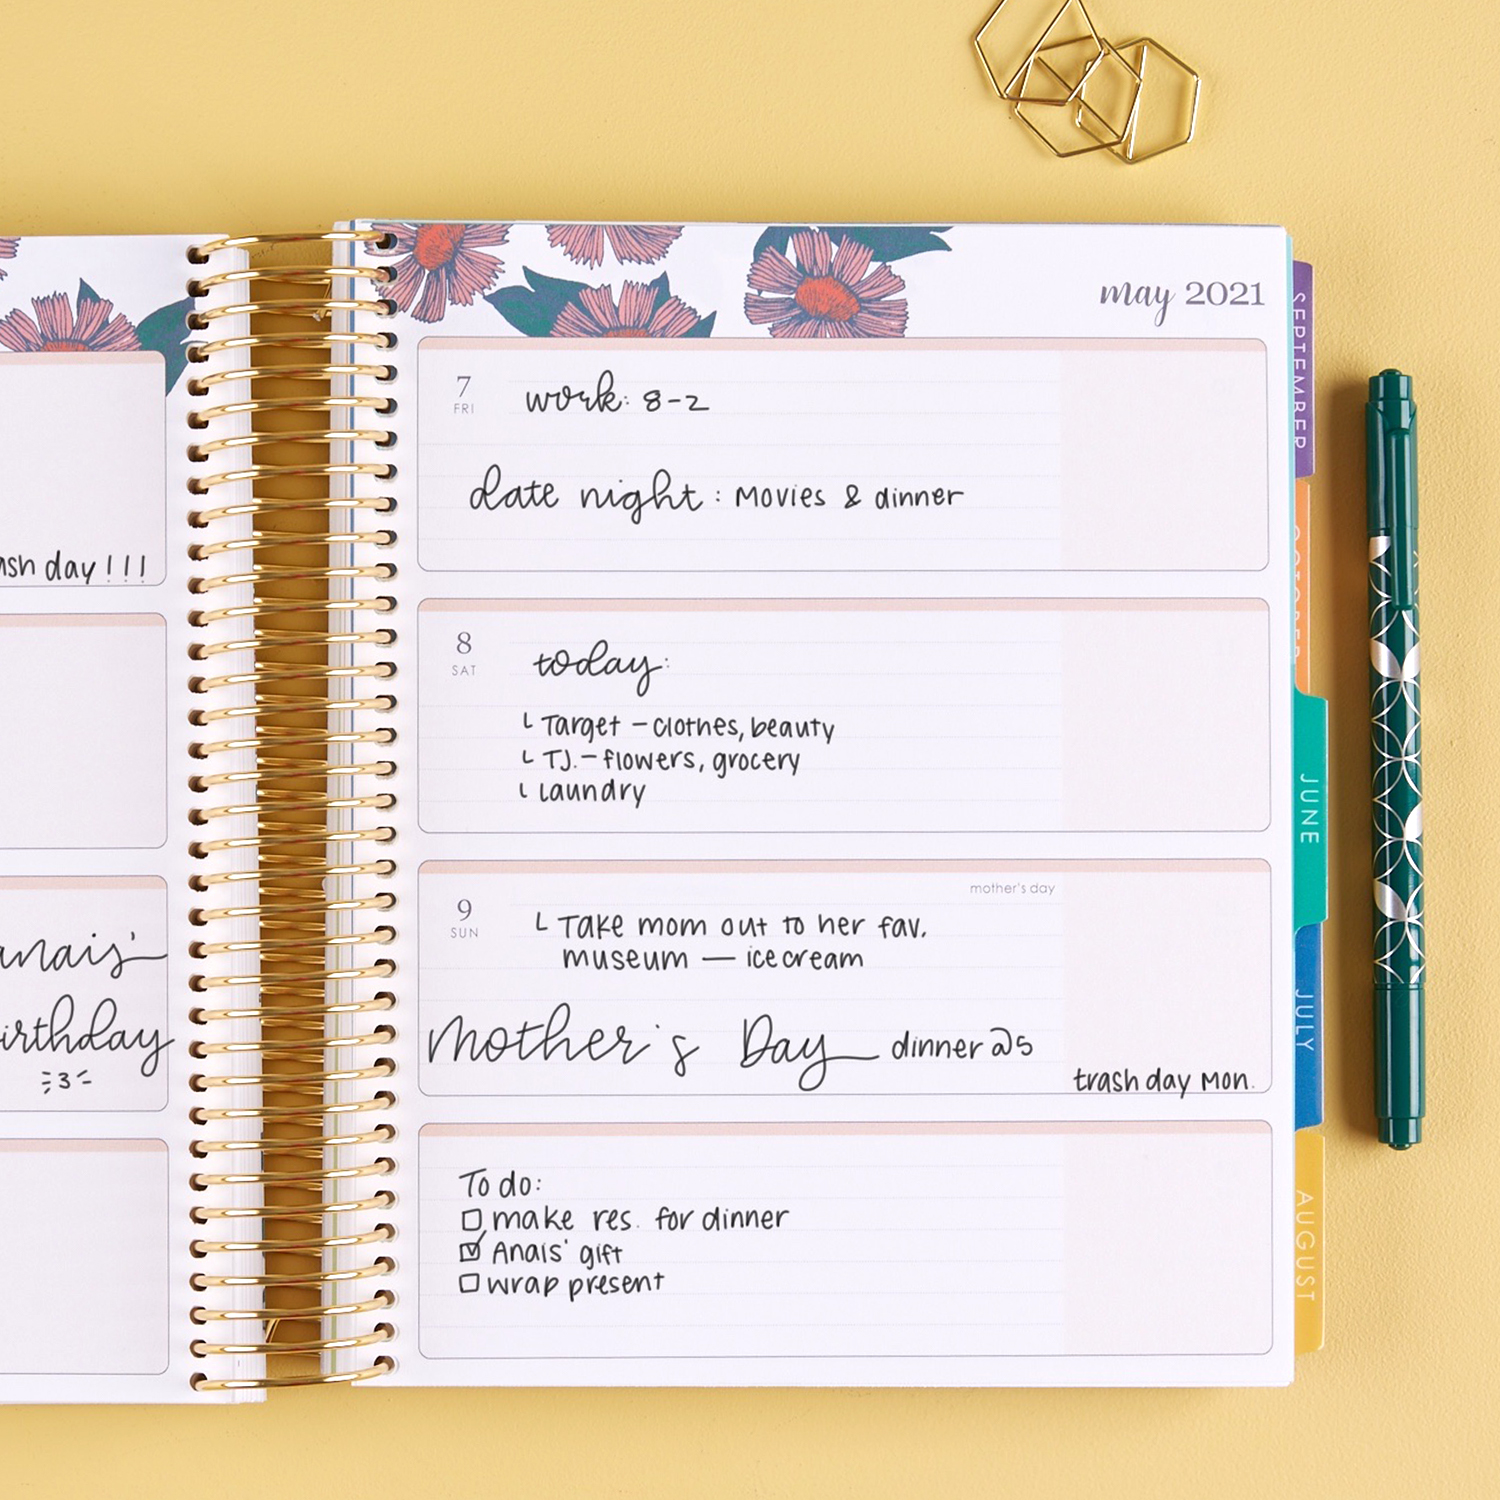 ash day!!!
anais'
irthday
3
may 2021
7
FRI
work: 8-2
date night: Movies & dinner
8
SAT
today:
Target - clothes, beauty
T.J. - flowers, grocery
laundry
mother's day
9
SUN
Take mom out to her fav.
museum — ice cream
mother's Day dinner @5
trash day Mon.
To do:
make res. for dinner
Anais' gift
wrap present
SEPTEMBER
OCTOBER
JUNE
JULY
AUGUST